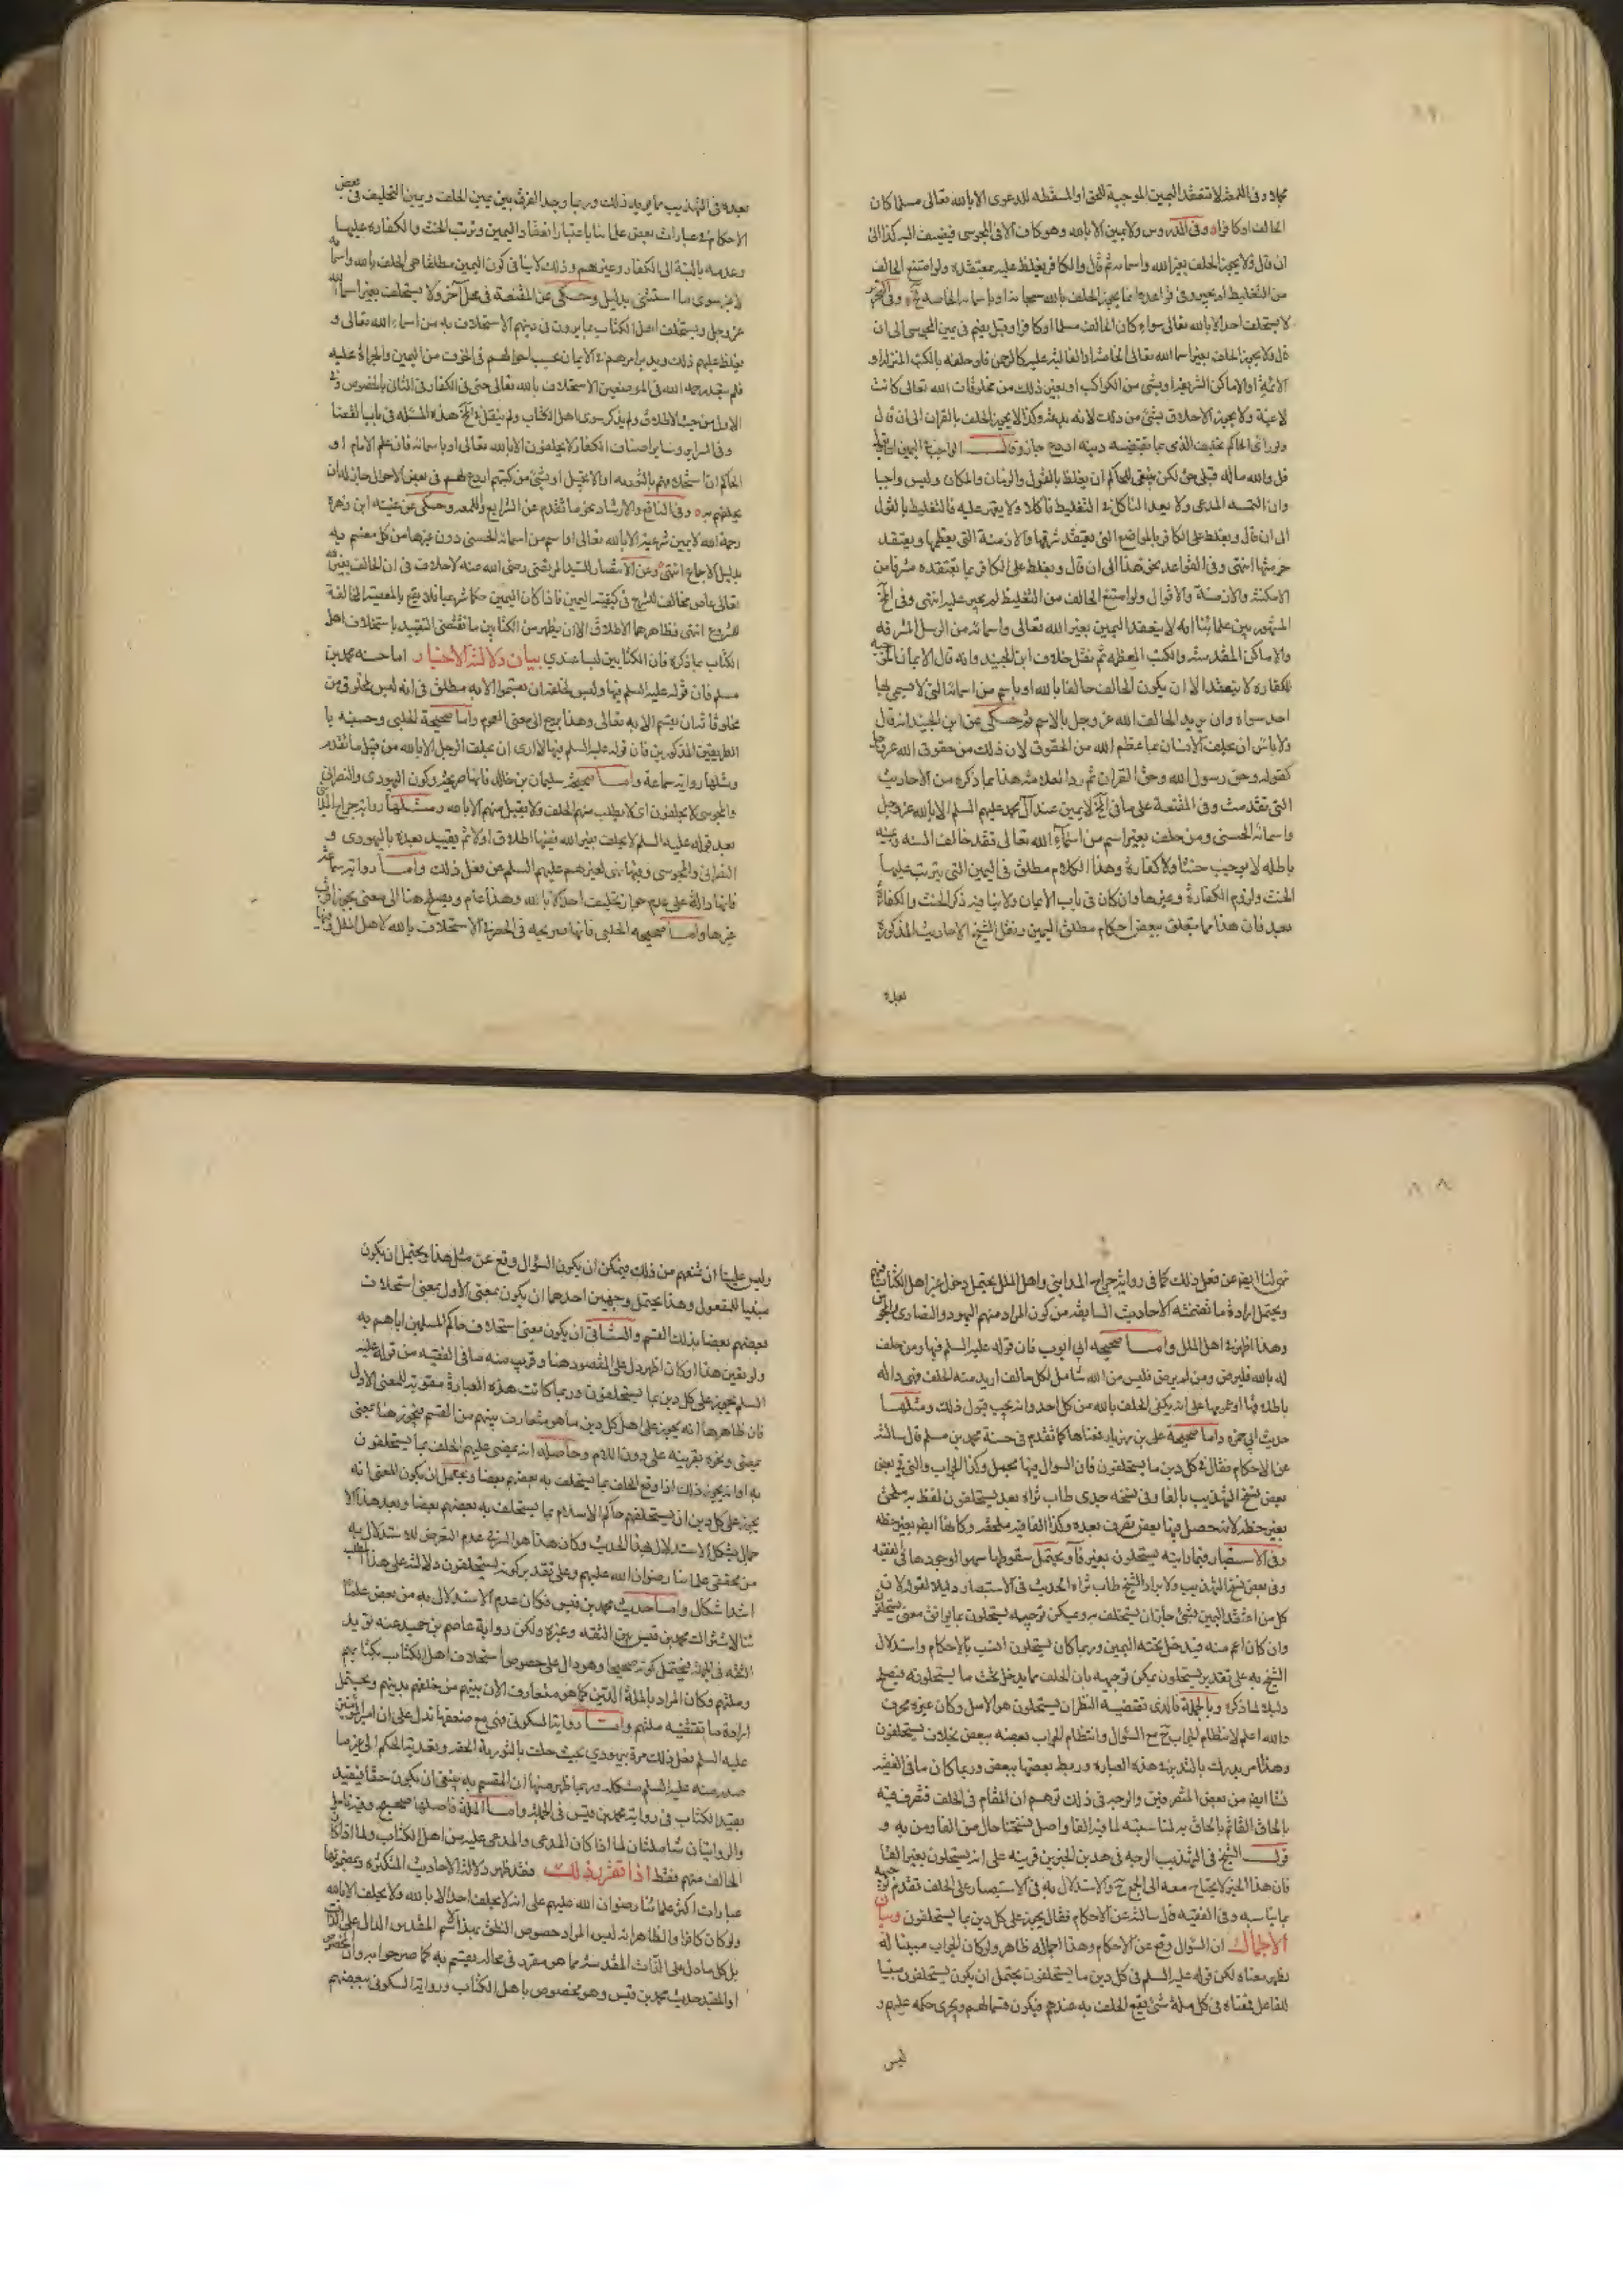 محمد وفى اللمعة لا تنعقد اليمين الموجبة للحق او المسقطه للدعوى الا بالله تعالى مسلما كان
الحالف اوكافرا وفى الدروس ولا يمين الا بالله وهو كاف الا فى المجوسى فيضيف اليه كذا الى
ان قال ولا يجوز الحلف بغير الله واسمائه ثم قال والكافر يغلظ عليه بمعتقده ولو امتنع الحالف
من التغليظ لم يجبر وفى قواعده انما يجوز الحلف بالله سبحانه او باسمائه الخاصه وفى التحرير
لا يستحلف احد الا بالله تعالى سواء كان الحالف مسلما اوكافرا وقيل يضم فى يمين المجوسى الى ان
قال ولا يجوز الحلف بغير اسماء الله تعالى الخاصة او الغالبة عليه كالرحمن فلو حلفه بالكتب المنزلة او
الائمة او الاماكن الشريفة او بشئ من الكواكب او بغير ذلك من مخلوقات الله تعالى كانت
لاغية ولا يجوز الاحلاف بشئ من ذلك لانه بدعة وكذا لا يجوز الحلف بالقران الى ان قال
ولو رائ الحاكم تحليف الذمى بما يقتضيه دينه اردع جاز وقال الواجب فى اليمين ان يقول
قل والله ماله قبلى حق لكن ينبغى للحاكم ان يغلظ بالقول والزمان والمكان وليس واجبا
وان التمسه المدعى ولا يعد الناكل فى التغليظ ناكلا ولا يجبر عليه فالتغليظ بالقول
الى ان قال ويغلظ على الكافر بالمواضع التى يعتقد شرفها والازمنة التى يعظمها ويعتقد
حرمتها انتهى وفى القواعد نحو هذا الى ان قال ويغلظ على الكافر بما يعتقده مشرفا من
الامكنة والازمنة والاقوال ولو امتنع الحالف من التغليظ لم يجبر عليه انتهى وفى
المشهور بين علمائنا انه لا ينعقد اليمين بغير الله تعالى واسمائه من الرسل المشرفه
والاماكن المقدسة والكتب المعظمه ثم نقل خلاف ابن الجنيد وانه قال الايمان الموجبه
للكفاره لا ينعقد الا ان يكون الحالف حالفا بالله او باسم من اسمائه التى لا يسمى بها
احد سواه وان يريد الحالف الله عز وجل بالاسم ثم حكى عن ابن الجنيد انه قال
ولا باس ان يحلف الانسان بما عظم الله من الحقوق لان ذلك من حقوق الله عز وجل
كقوله وحق رسول الله وحق القران ثم رد العلامة هذا بما ذكره من الاحاديث
التى تقدمت وفى المقنعة على ما فى لا يمين عند آل محمد عليهم السلم الا بالله عز وجل
واسمائه الحسنى ومن حلف بغير اسم من اسماء الله تعالى فقد خالف السنه ويمينه
باطله لا توجب حنثا ولا كفارة وهذا الكلام مطلق فى اليمين التى يترتب عليها
الحنث ولزوم الكفارة وغيرها وان كان فى باب الايمان ولا ينافيه ذكر الحنث والكفارة
بعد فان هذا مما يتعلق ببعض احكام مطلق اليمين ونقل الشيخ الاحاديث المذكورة
بعده
بعده فى التهذيب مما يريد ذلك وربما وجد الفرق بين يمين الحلف ويمين التحليف فى بعض
الاحكام فى عبارات بعض علمائنا باعتبار انعقاد اليمين وترتب الحنث والكفاره عليها
وعدمه بالنسبة الى الكفار وغيرهم وذلك لا ينافى كون اليمين مطلقا هى الحلف بالله واسمائه
لا بغير سوى ما استثنى بدليل وحكى عن المقنعة فى محل آخر ولا يستحلف بغير اسماء الله
عز وجل ويستحلف اهل الكتاب بما يرون فى دينهم الاستحلاف به من اسماء الله تعالى و
يغلظ عليهم ذلك
فلم يقيد رحمه الله فى الموضعين الاستحلاف بالله تعالى حتى فى الكفار فى الثانى بالخصوص وفى
الاول من حيث الاطلاق ولم يذكر سوى اهل الكتاب ولم ينقل هذه المسئله فى باب القضا
وفى وسائر اصناف الكفار لا يحلفون الا بالله تعالى او باسمائه فان علم الامام او
الحاكم ان استحلافهم بالتوريه او الانجيل او بشئ من كتبهم اردع لهم فى بعض الاحوال جاز له ان
يحلفهم به وفى النافع والارشاد نحو ما تقدم عن الشرايع واللمعه وحكى عن غنيته ابن زهرة
رحمة الله لا يمين شرعية الا بالله تعالى او اسم من اسمائه الحسنى دون غيرها من كل مقسم به
بدليل الاجماع انتهى وعن الانتصار للسيد المرتضى رضى الله عنه لا خلاف فى ان الحالف بغير الله
تعالى عاص مخالف للشرع فى كيفية اليمين فاذا كان اليمين حكما شرعيا فلا يقع بالمعصية المخالفة
للشروع انتهى فظاهرهما الاطلاق الا ان يظهر من الكتابين ما تقتضى التقييد باستحلاف اهل
الكتاب بما ذكره فان الكتابين ليسا عندي بيان دلالة الاخبار اما حسنه محمد بن
مسلم فان قوله عليه السلم فيها وليس لخلقه ان يقسموا الا به مطلق فى انه ليس لمخلوق من
مخلوقاته ان يقسم الا به تعالى وهذا يرجع الى معنى العموم واما صحيحة الحلبى وحسنه با
الطريقين المذكورين فان قوله عليه السلم فيها لا ارى ان يحلف الرجل الا بالله من قبيل ما تقدم
ومثلها رواية سماعة واما صحيحة سليمان بن خالد فانها صريحة وكون اليهودى والنصرانى
والمجوسى لا يحلفون اى لا يطلب منهم الحلف ولا يقبل منهم الا بالله ومثلها رواية جراح المدائنى
بعد قوله عليه السلم لا يحلف بغير الله ففيها اطلاق اولا ثم تقييد بعده باليهودى و
النصرانى والمجوسى وفيها نهى لغيرهم عليهم السلم عن فعل ذلك واما رواية سماعة
فانها دالة على عدم جواز تحليف احد الا بالله وهذا عام ويصلح هنا الى معنى يجوز
غيرها واما صحيحه الحلبى فانها صريحه فى الحصر فى الاستحلاف بالله لاهل الملل
نهى لنا ايضا عن فعل ذلك كما فى رواية جراح المدايني واهل الملل يحتمل دخول غير اهل الكتاب فيهم
ويحتمل ارادة ما تضمنته الاحاديث السابقه من كون المراد منهم اليهود والنصارى والمجوس
وهذا اظهر فى اهل الملل واما صحيحه ابى ايوب فان قوله عليه السلم فيها ومن حلف
له بالله فليرض ومن لم يرض فليس من الله شامل لكل حالف اريد منه الحلف فهى داله
باطلاقها او عمومها على انه يكفى الحلف بالله من كل احد وانه يجب قبول ذلك ومثلها
حديث ابي حمزه واما صحيحة على بن مهزيار فمعناها كما تقدم فى حسنة محمد بن مسلم قال سالته
عن الاحكام فقال فى كل دين ما يستحلفون فان السوال فيها مجمل وكذا الجواب والتى فى بعض
بعض نسخ التهذيب بالفا وفى نسخه جدى طاب ثراه بعد يستحلفون لفظ به ملحق
بغير خطه لا تحصل فيها بعض تصرف بعده وكذا الفا فيه ملحقه وكانها ايضا بغير خطه
وفى الاستبصار فيما رايته يستحلون بغير فآ ويحتمل سقوطها سهوا لوجودها فى الفقيه
وفى بعض نسخ التهذيب ولايراد الشيخ طاب ثراه الحديث فى الاستبصار دليلا لقوله لان
كل من اعتقد اليمين بشئ جاز ان يستحلف به ويمكن توجيهه يستحلون بما يوافق معنى يستحلفون
وان كان اعم منه فيدخل تحته اليمين وربما كان يستحلون انسب بالاحكام واستدلال
الشيخ به على تقدير يستحلون يمكن توجيهه بان الحلف مما يدخل تحت ما يستحلونه فيصلح
دليلا لما ذكره وبالجملة فالذى تقتضيه النظر ان يستحلون هو الاصل وكان غيره محرف
والله اعلم لانتظام الجواب ح مع السؤال وانتظام الجواب بعضه ببعض بخلاف يستحلفون
وهذا امر يدرك بالتدبر فى هذه العبارة وربط بعضها ببعض وربما كان ما فى الفقيه
نشا ايضا من بعض المتصرفين والوجه فى ذلك توهم ان المقام فى الحلف فتصرف فيه
بالحاق الفا ثم بالحاق به لمناسبته لما فيه الفا واصل نسختنا خال من الفا ومن به و
قول الشيخ فى التهذيب الوجه فى هذين الخبرين قرينه على انه يستحلون بغير الفا
فان هذا الخبر لا يحتاج معه الى الجمع ح والاستدلال به فى الاستبصار على الحلف تقدم توجيهه
بما يناسبه وفى الفقيه قال سالته عن الاحكام فقال يجوز على كل دين بما يستحلفون وبيان
الاجمال ان السؤال وقع عن الاحكام وهذا اجماله ظاهر ولو كان الجواب مبينا له
نظهر معناه لكن قوله عليه السلم فى كل دين ما يستحلفون يحتمل ان يكون يستحلفون مبنيا
للفاعل فمعناه فى كل ملة شئ يقع الحلف به عندهم فيكون قسما لهم ويجرى حكمه عليهم و
ليس
وليس علينا ان نمنعهم من ذلك فيمكن ان يكون السؤال وقع عن مثل هذا ويحتمل ان يكون
مبنيا للمفعول وهذا يحتمل وجهين احدهما ان يكون بمعنى الاول بمعنى استحلاف
بعضهم بعضا بذلك القسم والثانى ان يكون معنى استحلاف حاكم المسلمين اياهم به
ولو تعين هذا او كان اظهر دل على المقصود هنا وقريب منه ما فى الفقيه من قوله عليه
السلم يجوز على كل دين بما يستحلفون وربما كانت هذه العبارة مقوية للمعنى الاول
فان ظاهرها انه يجوز على اهل كل دين ما هو متعارف بينهم من القسم فيجوز هنا بمعنى
يمضى ونحوه بقرينه على دون اللام وحاصله انه يمضى عليهم الحلف بما يستحلفون
به او انه يجوز ذلك اذا وقع الحلف بما يستحلف به بعضهم بعضا ويحتمل ان يكون المعنى انه
يجوز على كل دين ان يستحلفهم حاكم الاسلام بما يستحلف به بعضهم بعضا وبعد هذا الا
حمال يشكل الاستدلال بهذا الحديث وكان هذا هو السر فى عدم التعرض للاستدلال به
من محققى علمائنا رضوان الله عليهم وعلى تقدير كونه يستحلفون دلالته على هذا المطلب
اشد اشكال واما حديث محمد بن قيس فكان عدم الاستدلال به من بعض علما
ئنا لاشتراك محمد بن قيس بين الثقه وغيره ولكن رواية عاصم بن حميد عنه تويد
الثقه فى الجملة فيحتمل كونه صحيحا وهو دال على خصوص استحلاف اهل الكتاب بكتابهم
وملتهم وكان المراد بالملة الدين كما هو متعارف الان بينهم من حلفهم بدينهم ويحتمل
ارادة ما تقتضيه ملتهم واما رواية السكونى فهى مع ضعفها تدل على ان امير المؤمنين
عليه السلم فعل ذلك مرة بيهودي بحيث حلف بالتورية الحضر وتعدية الحكم الى غير ما
صدر منه عليه السلم مشكله وربما ظهر منها ان المقسم به ينبغى ان يكون حقا فيفيد
تقييد الكتاب فى رواية محمد بن قيس فى الجملة واما الملة فاصلها صحيح وفيه تامل
والروايتان شاملتان لما اذا كان المدعى والمدعى عليه من اهل الكتاب ولما اذا كان
الحالف منهم فقط اذا تقرر ذلك فقد ظهر دلالة الاحاديث المتكثره وبعضها
عبارات اكثر علمائنا رضوان الله عليهم على انه لا يحلف احد الا بالله ولا يحلف الا بالله
ولو كان كافرا والظاهر انه ليس المراد خصوص النطق بهذا الاسم المقدس الدال على الذات
بل كل ما دل على الذات المقدسة مما هو مقرر فى محاله يقسم به كما صرحوا به وان
او المقيد حديث محمد بن قيس وهو مخصوص باهل الكتاب ورواية السكونى ببعضهم